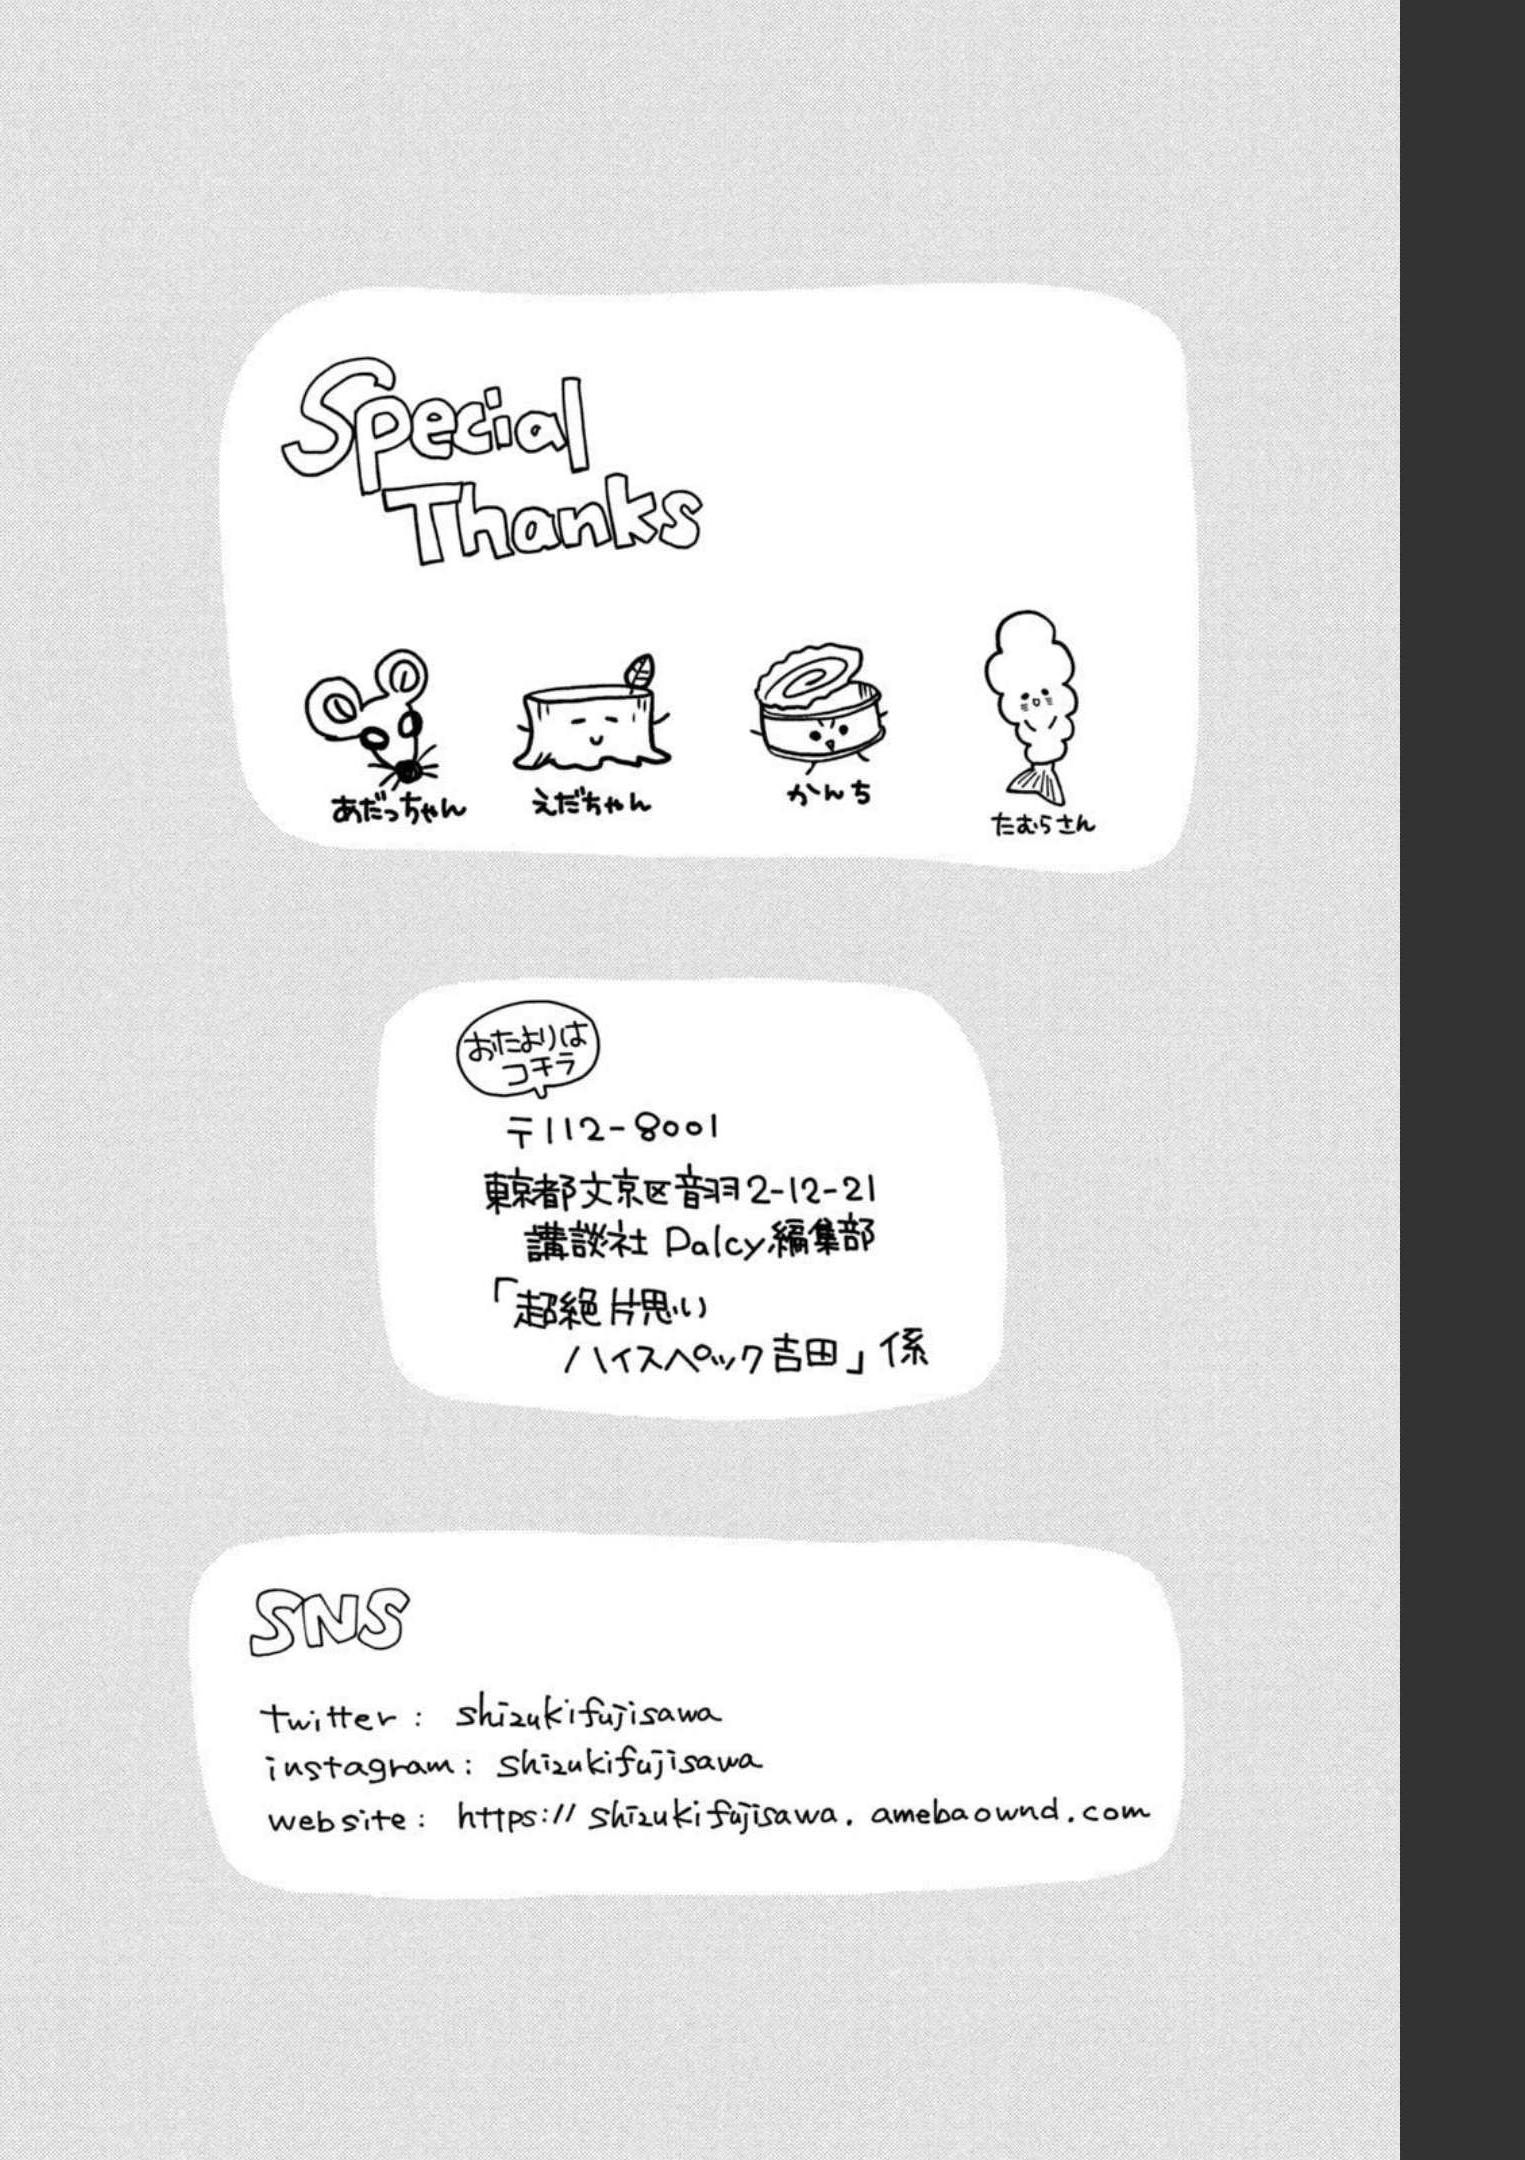 Special
Thanks
あだっちゃん
えだちゃん
かんち
たむらさん
おたよりは
コチラ
〒112-8001
東京都文京区音羽2-12-21
講談社 Palcy編集部
「超絶片思い
ハイスペック吉田」係
SNS
twitter : shizukifujisawa
instagram : shizukifujisawa
website : https://shizukifujisawa.amebaownd.com